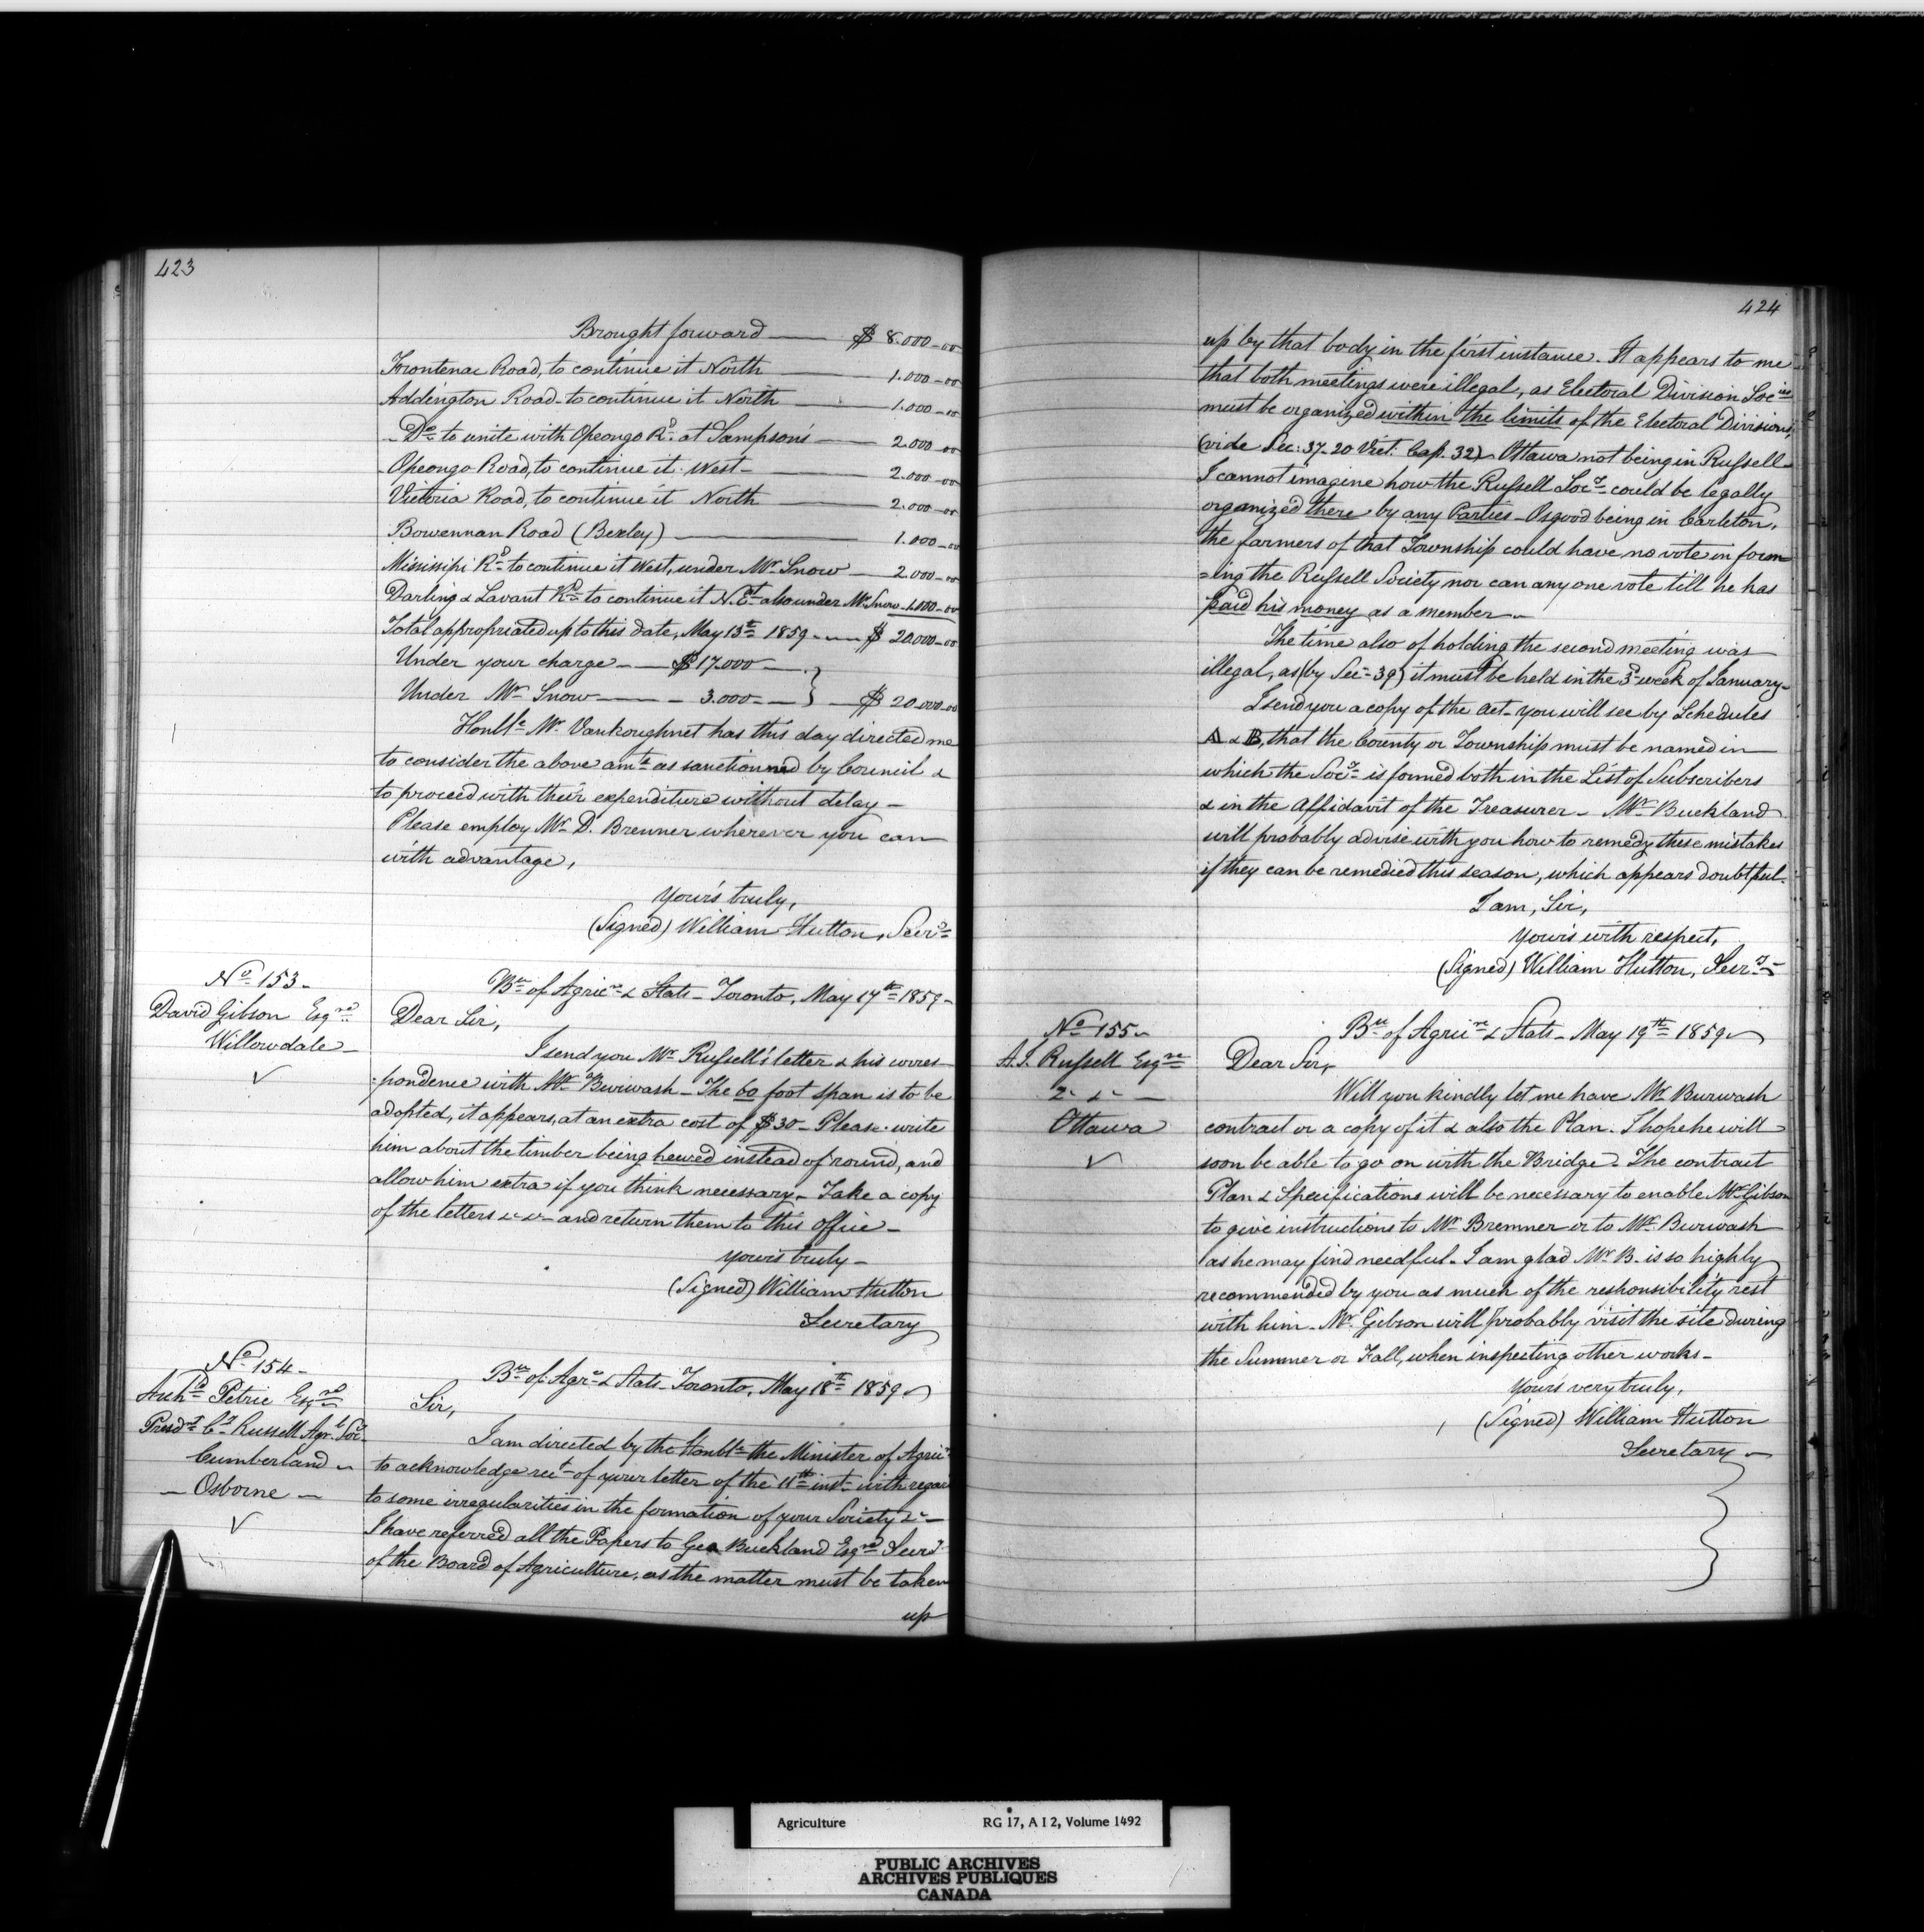 423
Brought forward — $ 8.000-00
Frontenac Road, to continue it North — 1.000-00
Addington Road - to continue it North — 1.000-00
- Do to unite with Opeongo Rd at Sampson's — 2.000-00
Opeongo Road, to continue it West — 2.000-00
Victoria Road, to continue it North — 2.000-00
Bowennan Road (Bexley) — 1.000-00
Missisipi Rd to continue it West, under Mr Snow — 2.000-00
Darling & Lavant Rd to continue it N. Et also under Mr Snow - 1.000-00
Total appropriated up to this date, May 13th 1859 — $ 20.000-00
Under your charge — $ 17.000 —
Under Mr Snow — 3.000 — } — $ 20.000-00
Honble Mr Vankoughnet has this day directed me
to consider the above amts as sanctioned by Council &
to proceed with their expenditure without delay —
Please employ Mr D. Bremner wherever you can
with advantage,
Your's truly,
(Signed) William Hutton, Secry
No 153 -
David Gibson Esqre
Willowdale -
Bu of Agrice & Stats - Toronto, May 17th 1859 -
Dear Sir,
I send you Mr Russell's letter & his corres-
-pondence with Mr Burwash - The 60 foot span is to be
adopted, it appears, at an extra cost of $30 - Please write
him about the timber being hewed instead of round, and
allow him extra if you think necessary - Take a copy
of the letters &c &c - and return them to this office -
Your's truly -
(Signed) William Hutton
Secretary
No 154 -
Archd Petrie Esqre
Presdt Cy Russell Agrl Socy
Cumberland -
- Osborne -
Bu of Agre & Stats - Toronto, May 18th 1859 -
Sir,
I am directed by the Honble the Minister of Agrice
to acknowledge rect of your letter of the 11th inst - with regard
to some irregularities in the formation of your Society &c -
I have referred all the Papers to Geo Buckland Esqre Secry
of the Board of Agriculture, as the matter must be taken
up
424
up by that body in the first instance. It appears to me
that both meetings were illegal, as Electoral Division Socies
must be organized within the limits of the Electoral Divisions,
(vide Sec: 37 - 20 Vict: Cap. 32) - Ottawa not being in Russell -
I cannot imagine how the Russell Socy could be legally
organized there by any Parties - Osgood being in Carleton,
the farmers of that Township could have no vote in form
=ing the Russell Society nor can any one vote till he has
paid his money as a member -
The time also of holding the second meeting was
illegal, as (by Sec - 39) it must be held in the 3rd week of January -
I send you a copy of the Act - you will see by Schedules
A & B, that the County or Township must be named in
which the Socy is formed both in the List of Subscribers
& in the Affidavit of the Treasurer - Mr Buckland
will probably advise with you how to remedy these mistakes
if they can be remedied this season, which appears doubtful -
I am, Sir,
Your's with respect,
(Signed) William Hutton, Secry -
No 155 -
A. J. Russell Esqre
&c &c —
Ottawa
Bu of Agrice & Stats - May 19th 1859 -
Dear Sir,
Will you kindly let me have Mr Burwash
contract or a copy of it & also the Plan - I hope he will
soon be able to go on with the Bridge - The contract
Plan & Specifications will be necessary to enable Mr Gibson
to give instructions to Mr Bremner or to Mr Burwash
as he may find needful. I am glad Mr B. is so highly
recommended by you as much of the responsibility rest
with him - Mr Gibson will probably visit the site during
the Summer or Fall, when inspecting other works -
Your's very truly,
(Signed) William Hutton
Secretary -
Agriculture RG 17, A I 2, Volume 1492
PUBLIC ARCHIVES
ARCHIVES PUBLIQUES
CANADA